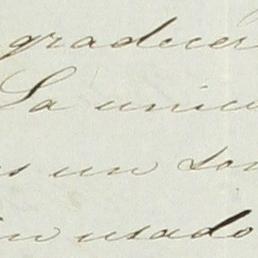 gradecer
La unic
s un som
in usado